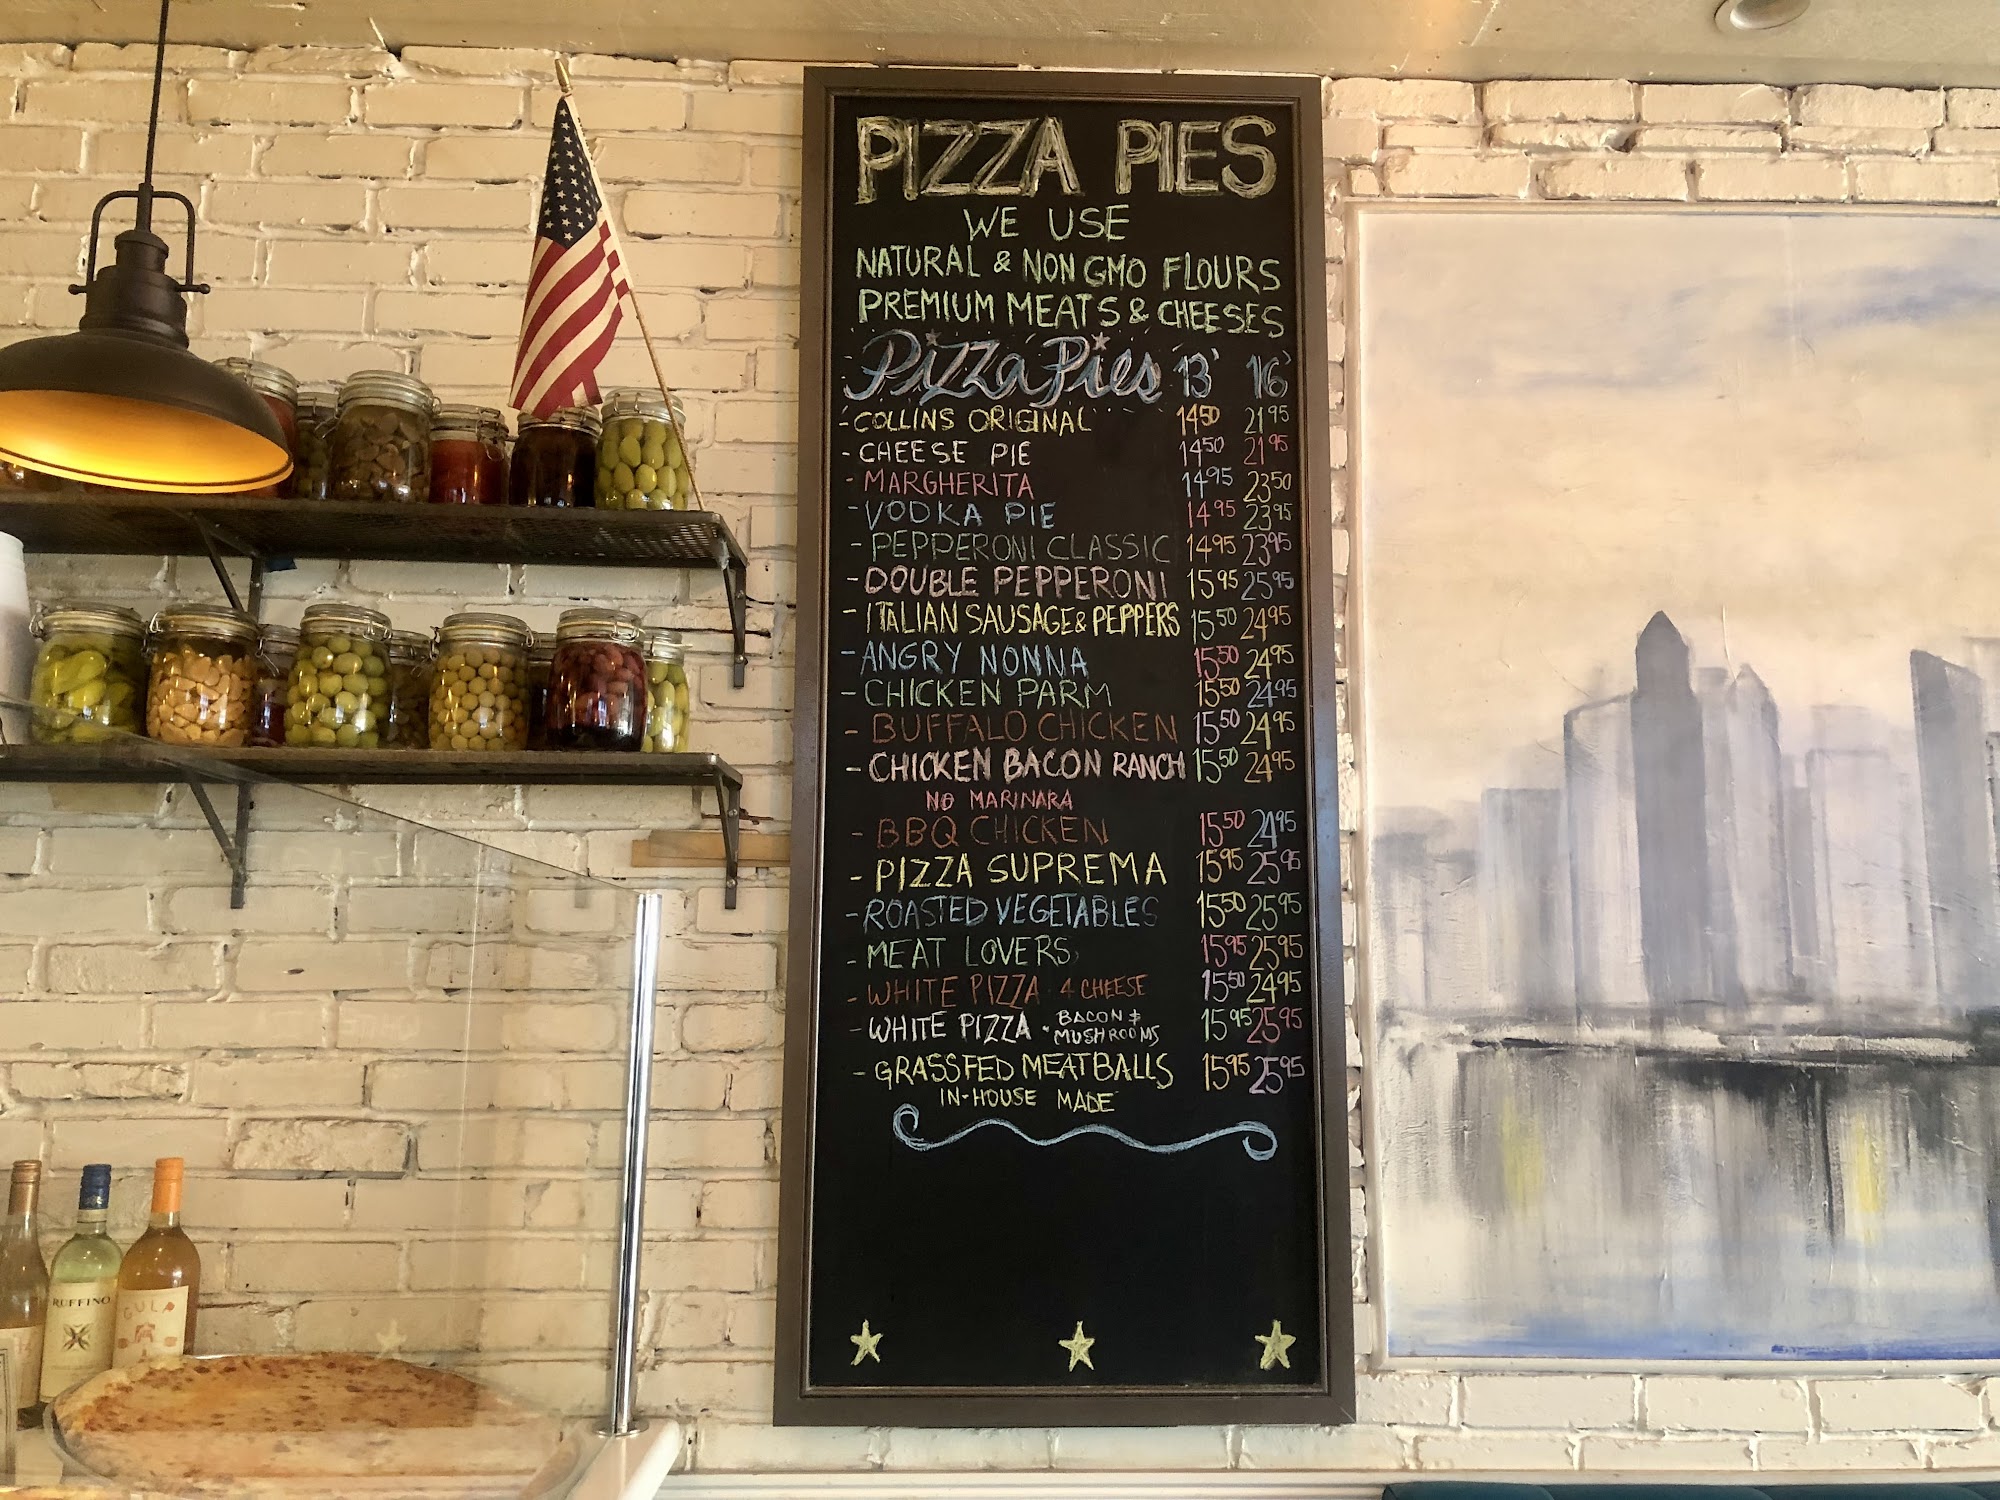 PIZZA PIES
WE USE
NATURAL & NON GMO FLOURS
PREMIUM MEATS & CHEESES
Pizza Pies 13" 16"
- COLLINS ORIGINAL 14 50 21 95
- CHEESE PIE 14 50 21 95
- MARGHERITA 14 95 23 50
- VODKA PIE 14 95 23 95
- PEPPERONI CLASSIC 14 95 23 95
- DOUBLE PEPPERONI 15 95 25 95
- ITALIAN SAUSAGE & PEPPERS 15 50 24 95
- ANGRY NONNA 15 50 24 95
- CHICKEN PARM 15 50 24 95
- BUFFALO CHICKEN 15 50 24 95
- CHICKEN BACON RANCH 15 50 24 95
NO MARINARA
- BBQ CHICKEN 15 50 24 95
- PIZZA SUPREMA 15 95 25 95
- ROASTED VEGETABLES 15 50 25 95
- MEAT LOVERS 15 95 25 95
- WHITE PIZZA · 4 CHEESE 15 50 24 95
- WHITE PIZZA · BACON & MUSHROOMS 15 95 25 95
- GRASSFED MEATBALLS 15 95 25 95
IN-HOUSE MADE
RUFFINO
GULP